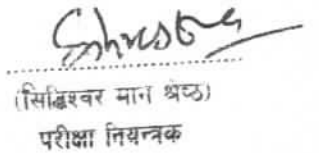 (सिद्धिश्वर मान श्रेष्ठ)
परीक्षा नियन्त्रक